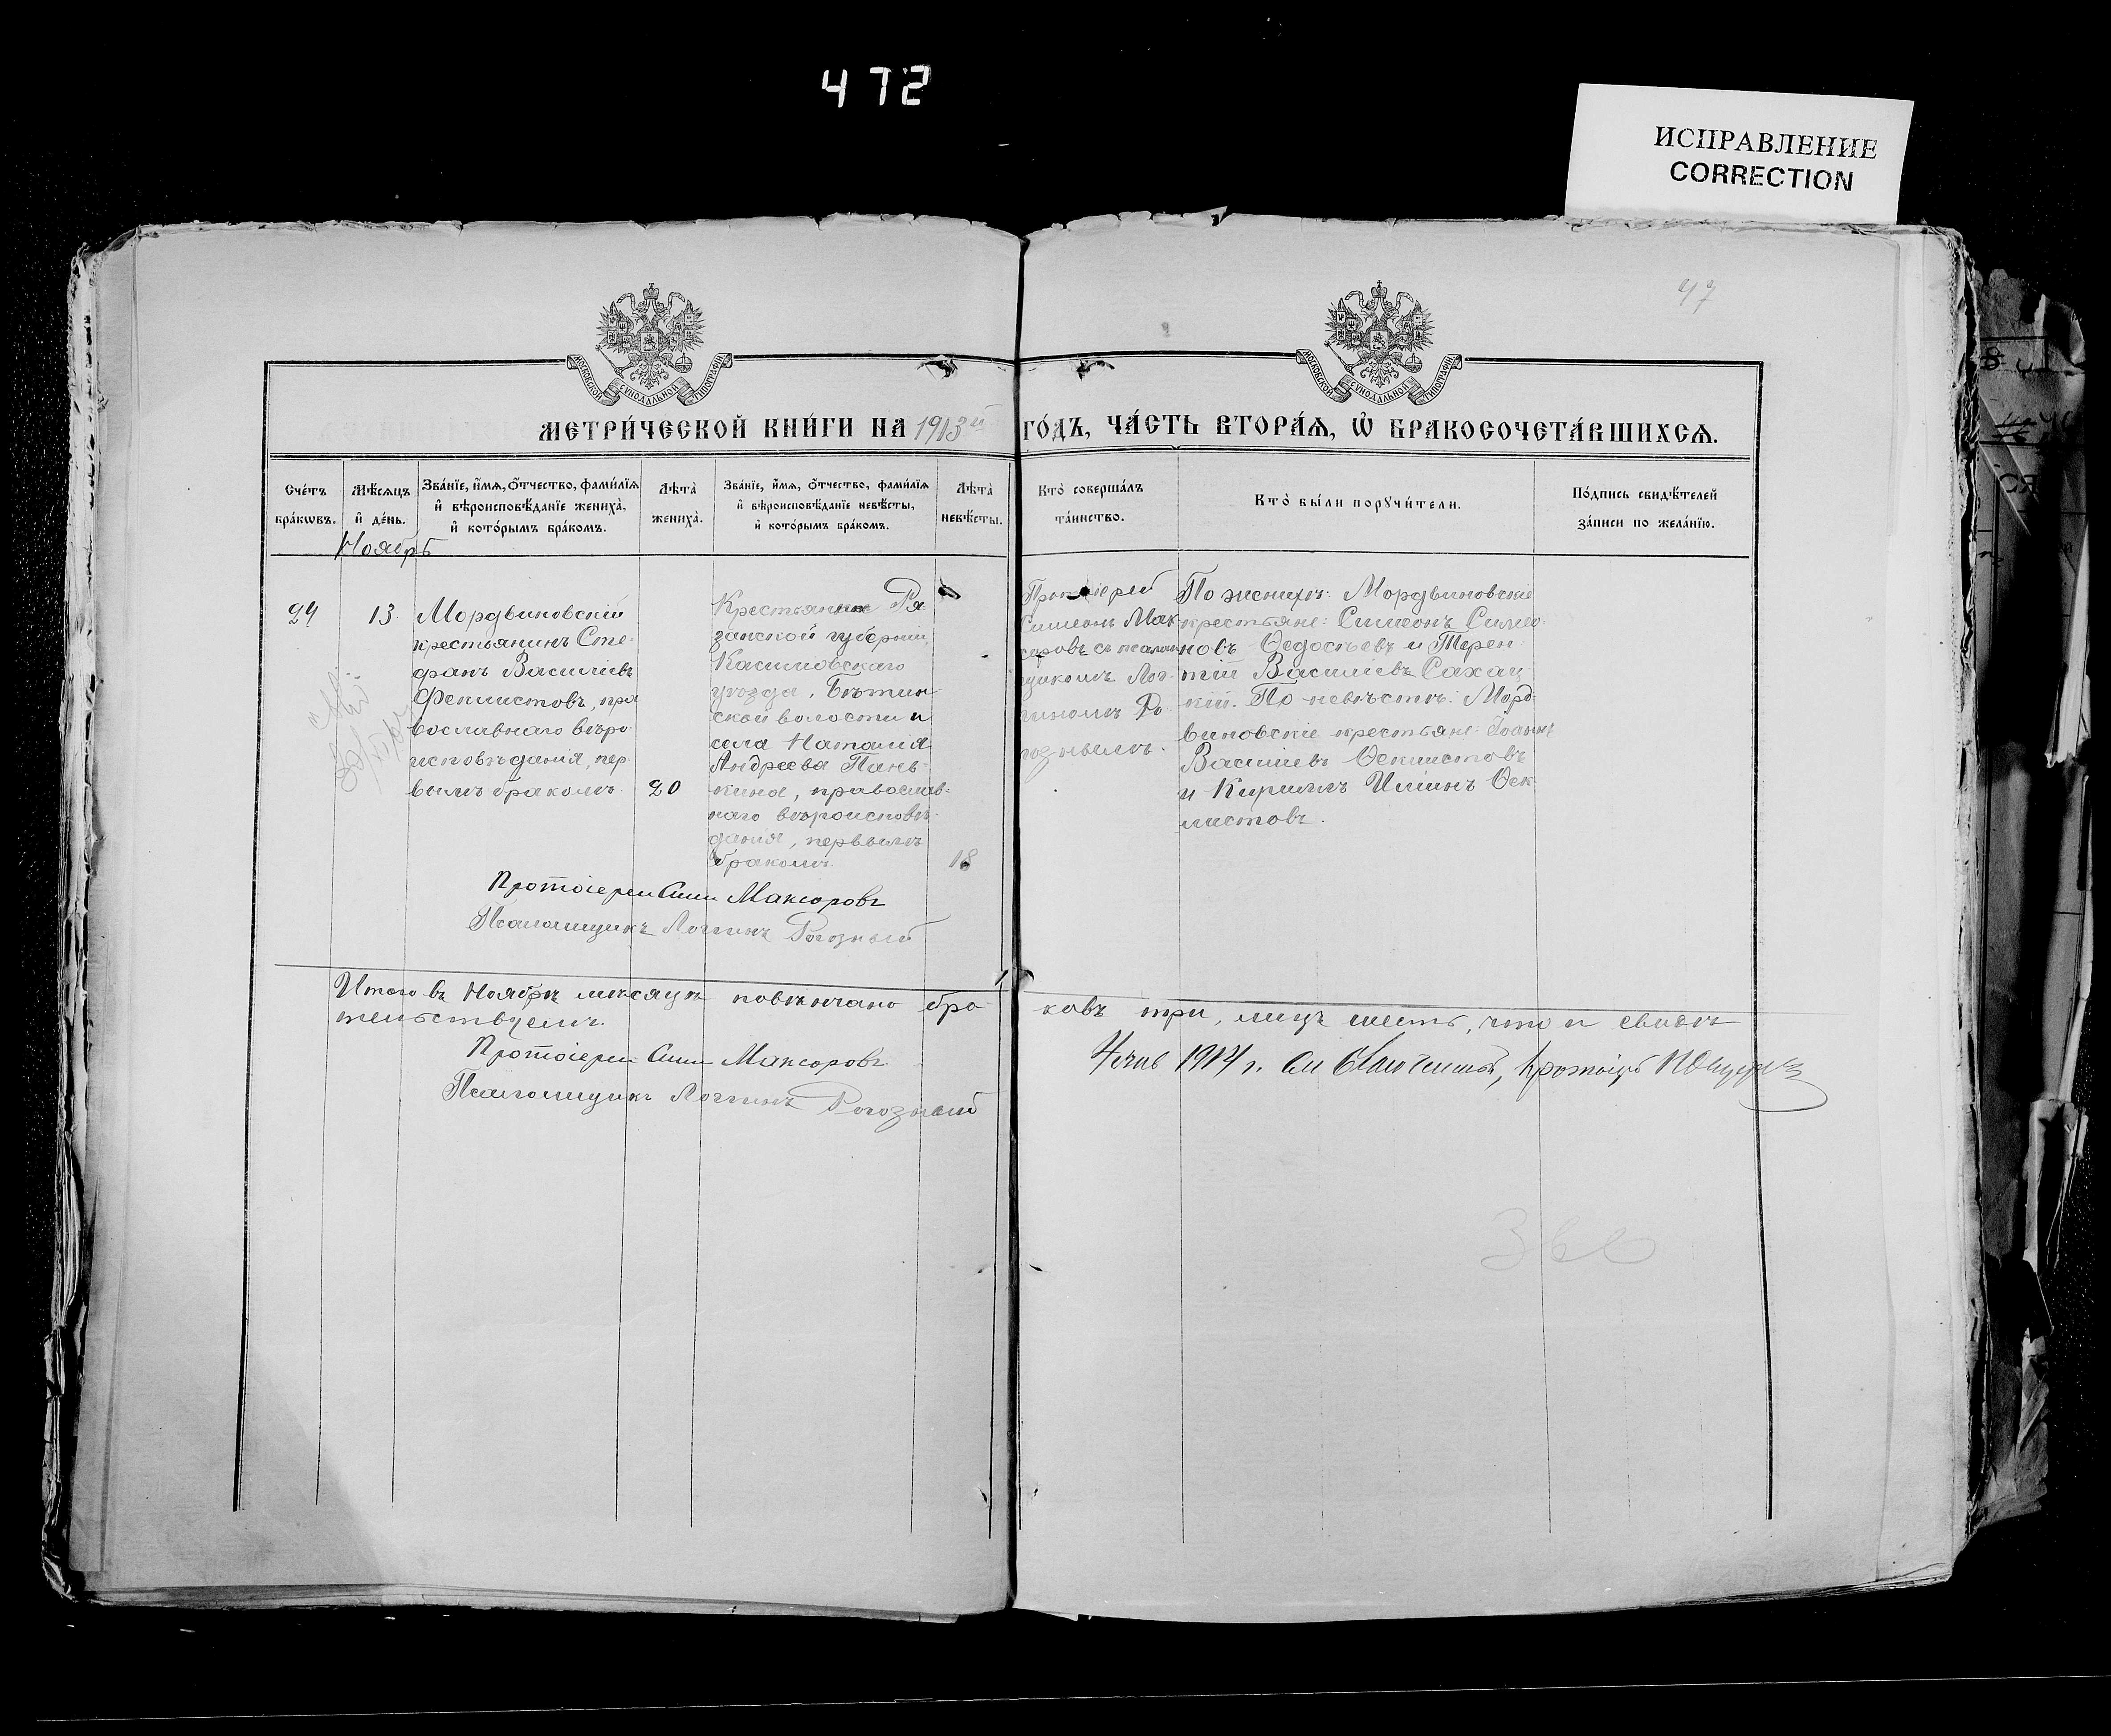 472
ИСПРАВЛЕНИЕ
CORRECTION
47
МОСКОВСКОЙ СѴНОДАЛЬНОЙ ТИПОГРАФІИ
МОСКОВСКОЙ СѴНОДАЛЬНОЙ ТИПОГРАФІИ
МЕТРИ́ЧЕСКОЙ КНИ́ГИ НА 1913й ГО́ДЪ, ЧА́СТЬ ВТОРА́Я, Ѡ БРАКОСОЧЕТА́ВШИХСЯ.
Сче́тъ
бра́кѡвъ.
Мѣ́сяцъ
и҆ де́нь.
Зва́нїе, и҆́мя, ѻ҆́тчество, фами́лїя
и҆ вѣроисповѣ́данїе жениха̀,
и҆ кото́рымъ бра́комъ.
Лѣта̀
жениха̀.
Зва́нїе, и҆́мя, ѻ҆́тчество, фами́лїя
и҆ вѣроисповѣ́данїе невѣ́сты,
и҆ кото́рымъ бра́комъ.
Лѣта̀
невѣ́сты.
Кто̀ соверша́лъ
та́инство.
Кто̀ бы́ли порꙋчи́тели.
По́дпись свидѣ́телей
за́писи по жела́нїю.
Ноябрь
24
13
Мордвиновскій
крестьянинъ Сте-
фанъ Василіевъ
Феклистовъ, пра-
вославнаго вѣро-
исповѣданія, пер-
вымъ бракомъ.
20
Крестьянка Ря-
занской губерніи,
Касимовскаго
уѣзда, Бѣтин-
ской волости и
села Наталія
Андреева Пань-
кина, православ-
наго вѣроисповѣ-
данія, первымъ
бракомъ.
18
Протоіерей
Симеонъ Мак-
саровъ съ псалом-
щикомъ Лог-
гиномъ Ро-
гознымъ.
По женихѣ: Мордвиновскіе
крестьяне: Симеонъ Симео-
новъ Ѳедосѣевъ и Терен-
тій Василіевъ Сахац-
кій. По невѣстѣ: Морд-
виновскіе крестьяне: Іоаннъ
Василіевъ Ѳеклистовъ
и Кириллъ Илиинъ Ѳек-
листовъ.
Протоіерей Сим Максоровъ
Псаломщикъ Логгинъ Рогозный
Итого въ Ноябрѣ мѣсяцѣ повѣнчано бра-
ковъ три, лицъ шесть, что и свидѣ-
тельствуемъ.
Протоіерей Сим Максоровъ
Псаломщикъ Логгинъ Рогозный
1914 г.